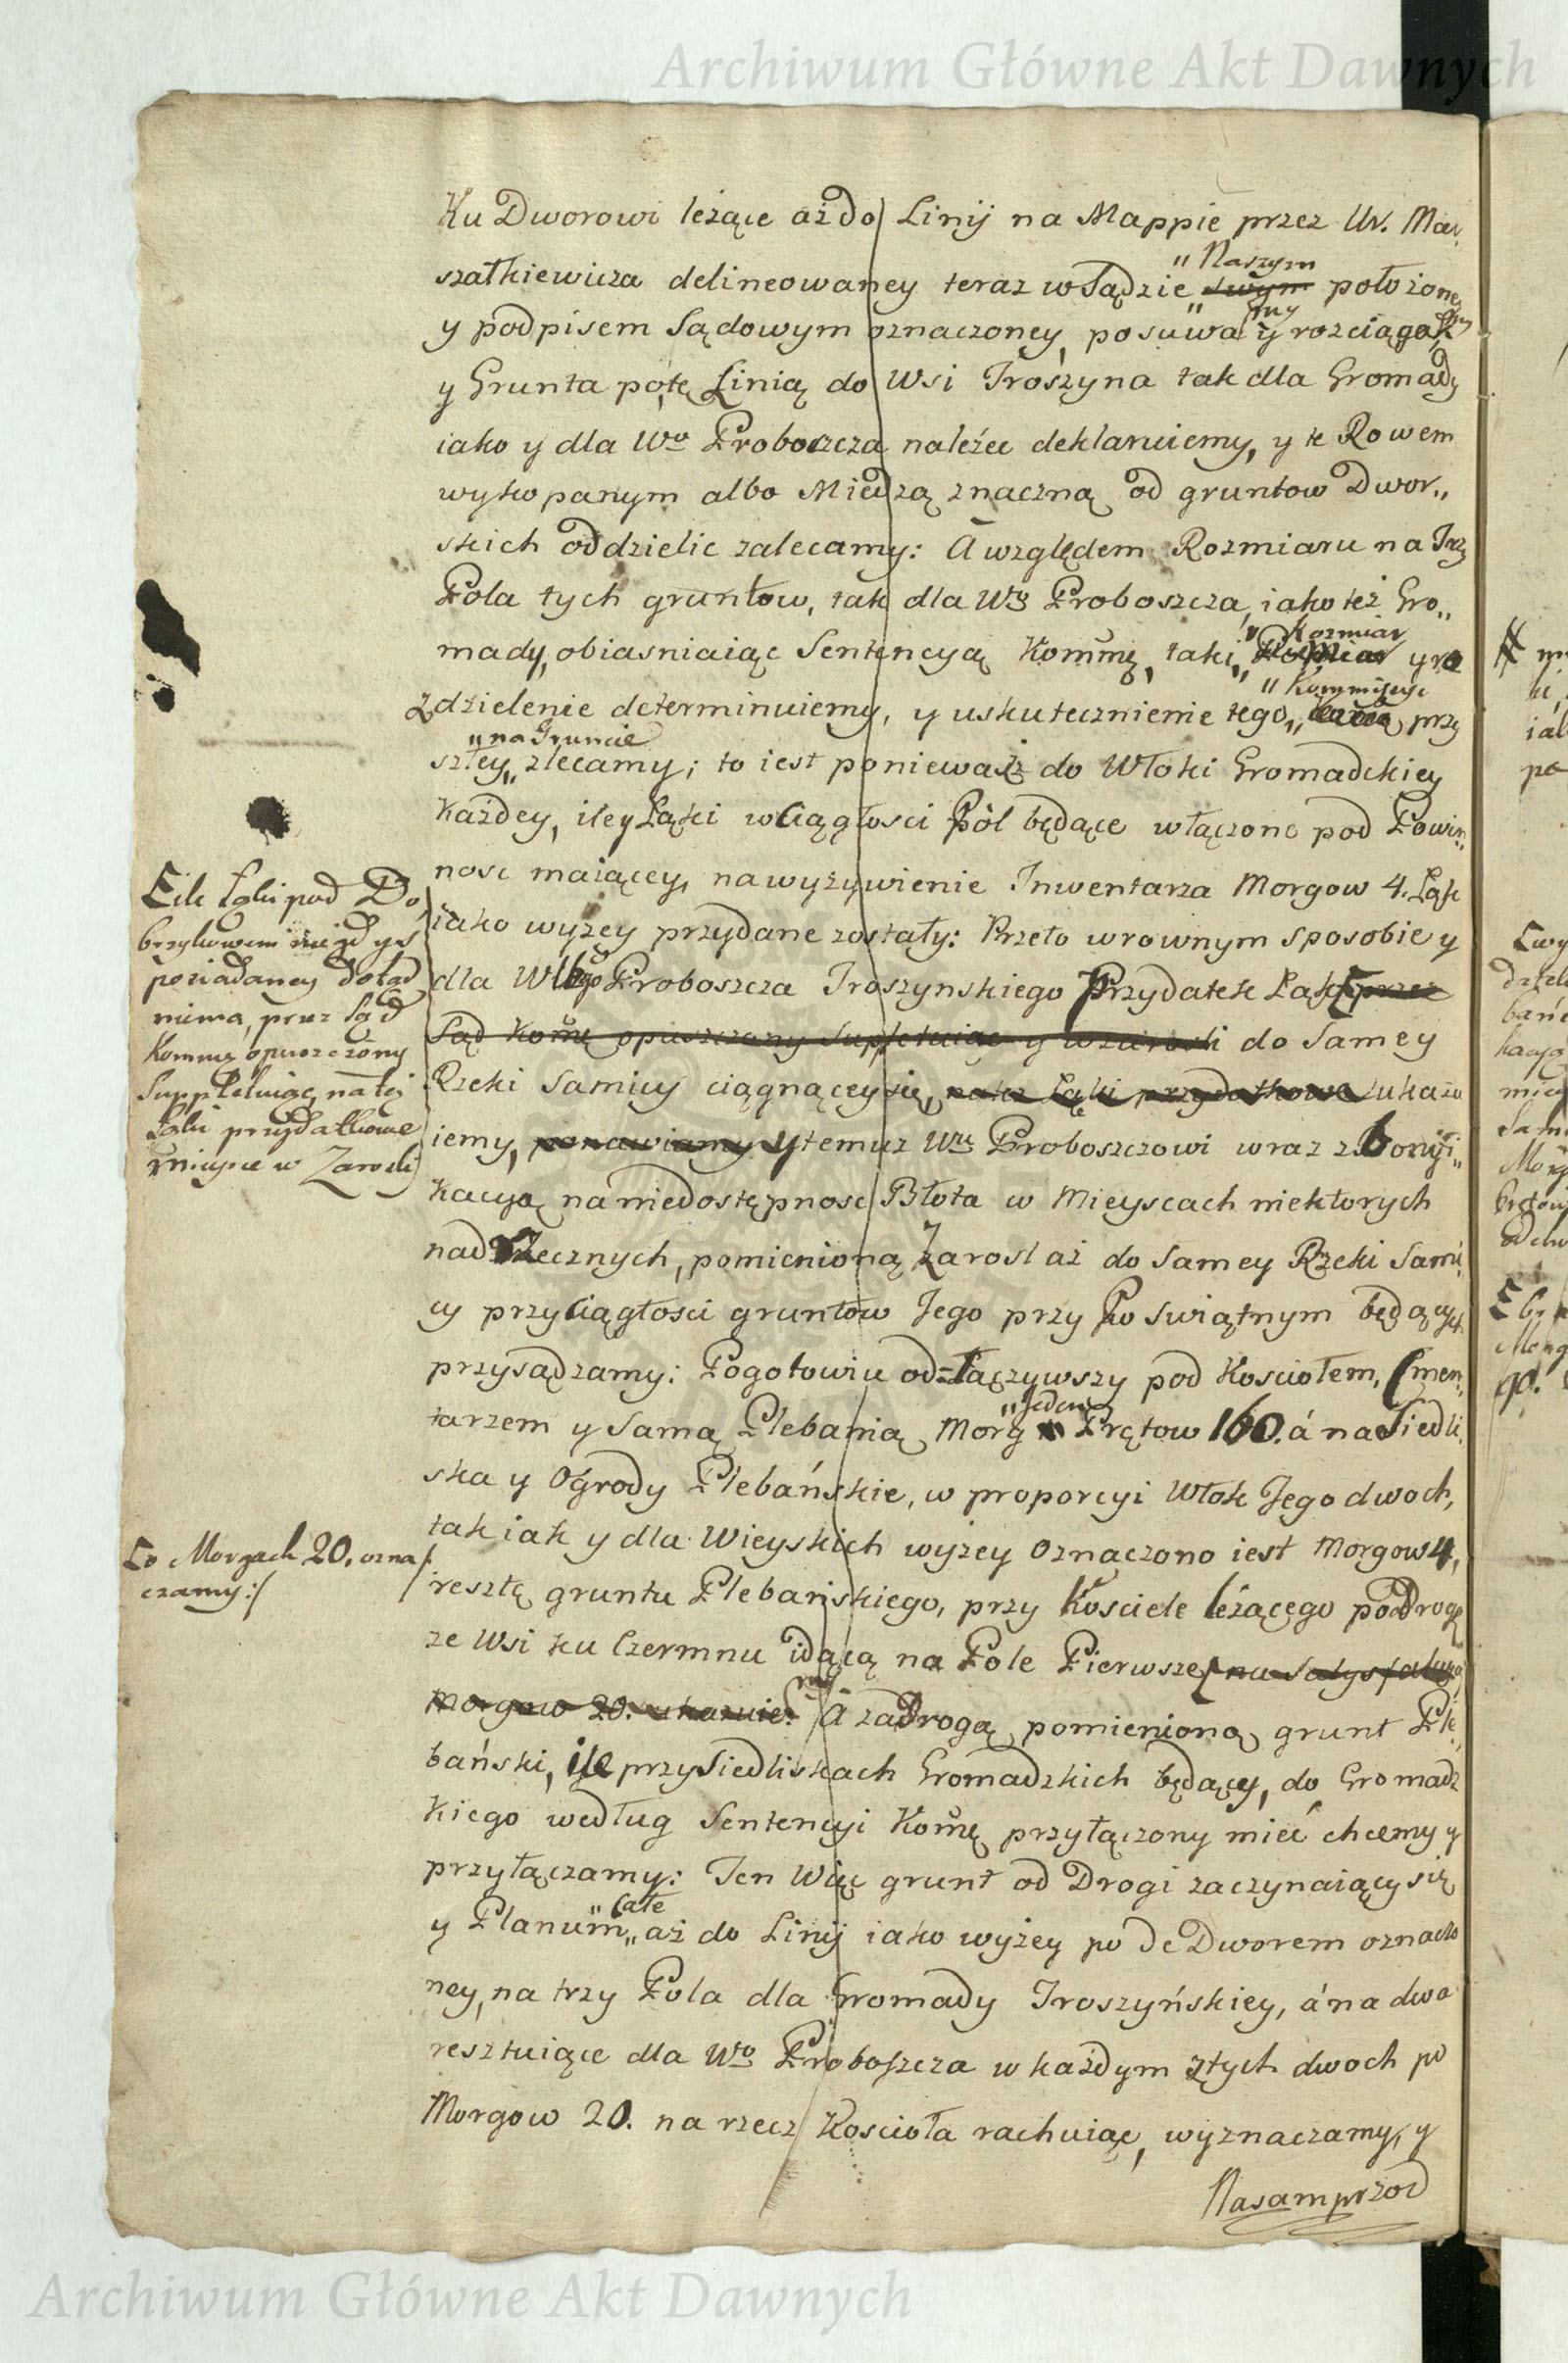 Archiwum Główne Akt Dawnych
Ku Dworowi leżące aż do Linij na Mappie przez Ur. Mar,
szałkiewicza delineowaney teraz w Sądzie „ swym położoney
„ Naszym
y podpisem Sądowym oznaczoney, posuwamy y rozciągamy
y Grunta po tę Linią do Wsi Troszyna tak dla Gromady
iako y dla Wo Proboszcza należeć deklaruiemy, y te Rowem
wykopanym albo Miedzą znaczną od gruntow Dwor„
skich oddzielic zalecamy: A względem Rozmiaru na Trzy
Pola tych gruntow, tak dla Wgo Proboszcza, iako też Gro„
mady, obiasniaiąc Sentencyą Kommę, taki „ yro
„ Rozmiar
zdzielenie determinuiemy, y uskutecznienie tego „ przy
„ Kommissyi
szłey „ zlecamy; to iest ponieważ do Włoki Gromadckiey
„ na Gruncie
Każdey, iley Łąki w Ciągłosci Pól będące włączone pod Powin„
nosc maiącey, na wyżywienie Inwentarza Morgow 4. Łąk
iako wyżey przydane zostały: Przeto w rownym sposobie y
dla Wgo Proboszcza Troszynskiego Przydatek Łąk przez
Sąd Komę opuszczony Supletuiąc y wzarosli do Samey
Rzeki Samicy ciągnącey się, Łąki przydatkowe ukazu
iemy, ponawiamy y temuz Wu Proboszczowi wraz z bonifi„
kacyą na niedostępnosc Błota w Mieyscach niektorych
nad Rzecznych, pomienioną Zarosl aż do Samey Rzeki Sami,
cy przy Ciągłosci gruntow Jego przy Po Swiątnym będących
przysądzamy: Pogotowiu od=Łączywszy pod Kosciołem, Cmen„
tarzem y Samą Plebanią Morg Prętow 160. á na Siedli„
„ jeden
ska y Ogrody Plebańskie, w proporcyi Włok Jego dwoch,
tak iak y dla Wieyskich wyżey oznaczono iest Morgow 4,
resztę gruntu Plebańskiego, przy Kościele leżącego pod Drogę
ze Wsi ku Czermnu idącą na Pole Pierwsze na Satysfakcyą
Morgow 20. A za Drogą pomienioną grunt Ple„
bański, ile przy Siedliskach Gromadzkich będący, do Gromadz
kiego według Sentencyi Komę przyłączony mieć chcemy y
przyłączamy: Ten Więc grunt od Drogi zaczynaiący się
y Planum „ aż do Linij iako wyżey po de Dworem oznaczo
„ Całe
ney, na trzy Pola dla Gromady Troszyńskiey, á na dwa
resztuiące dla Wo Proboszcza w każdym z tych dwoch po
Morgow 20. na rzecz Koscioła rachuiąc, wyznaczamy, y
Nasamprzod
Eile Łąki pod Do,
brzykowem
posiadaney dotąd
niema, przez Sąd
Kommę opuszczony
Suppletuiąc, na tej
Łąki przydatkowe
mieysce w Zarosli
Po Morgach 20. ozna
czamy:/
Archiwum Główne Akt Dawnych